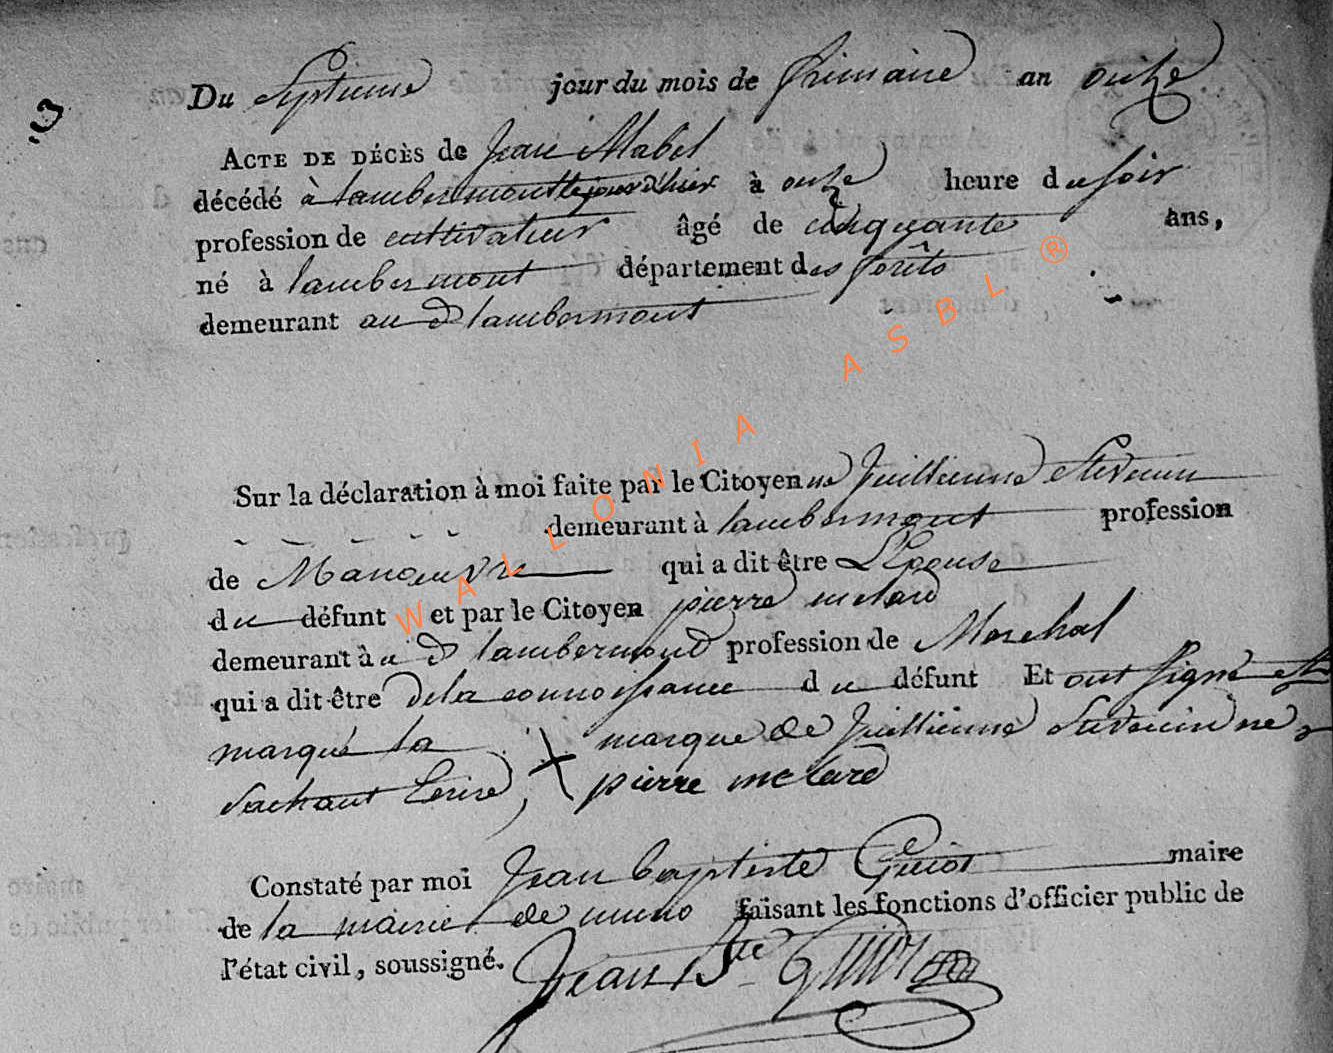 3
Du Septieme jour du mois de frimaire an onze
ACTE DE DÉCÈS de Jean Mabel
décédé à lambermont le jour d'hier à onze heure du soir
profession de cultivateur âgé de cinquante ans,
né à lambermont département des forêts
demeurant au d lambermont
Sur la déclaration à moi faite par le Citoyenne Juillienne Stevenin
demeurant à lambermont profession
de Manoeuvre qui a dit être L'Epouse
du défunt et par le Citoyen pierre melard
demeurant à u d lambermont profession de Marchal
qui a dit être de la connoissance du défunt Et ont signé et
marqué la marque de Juillienne Stevenin ne
Sachant Ecrire, pierre melard
Constaté par moi Jean baptiste Guiot maire
de la mairie de muno faisant les fonctions d'officier public de
l'état civil, soussigné. Jean Bte Guiot
WALLONIA ASBL ®